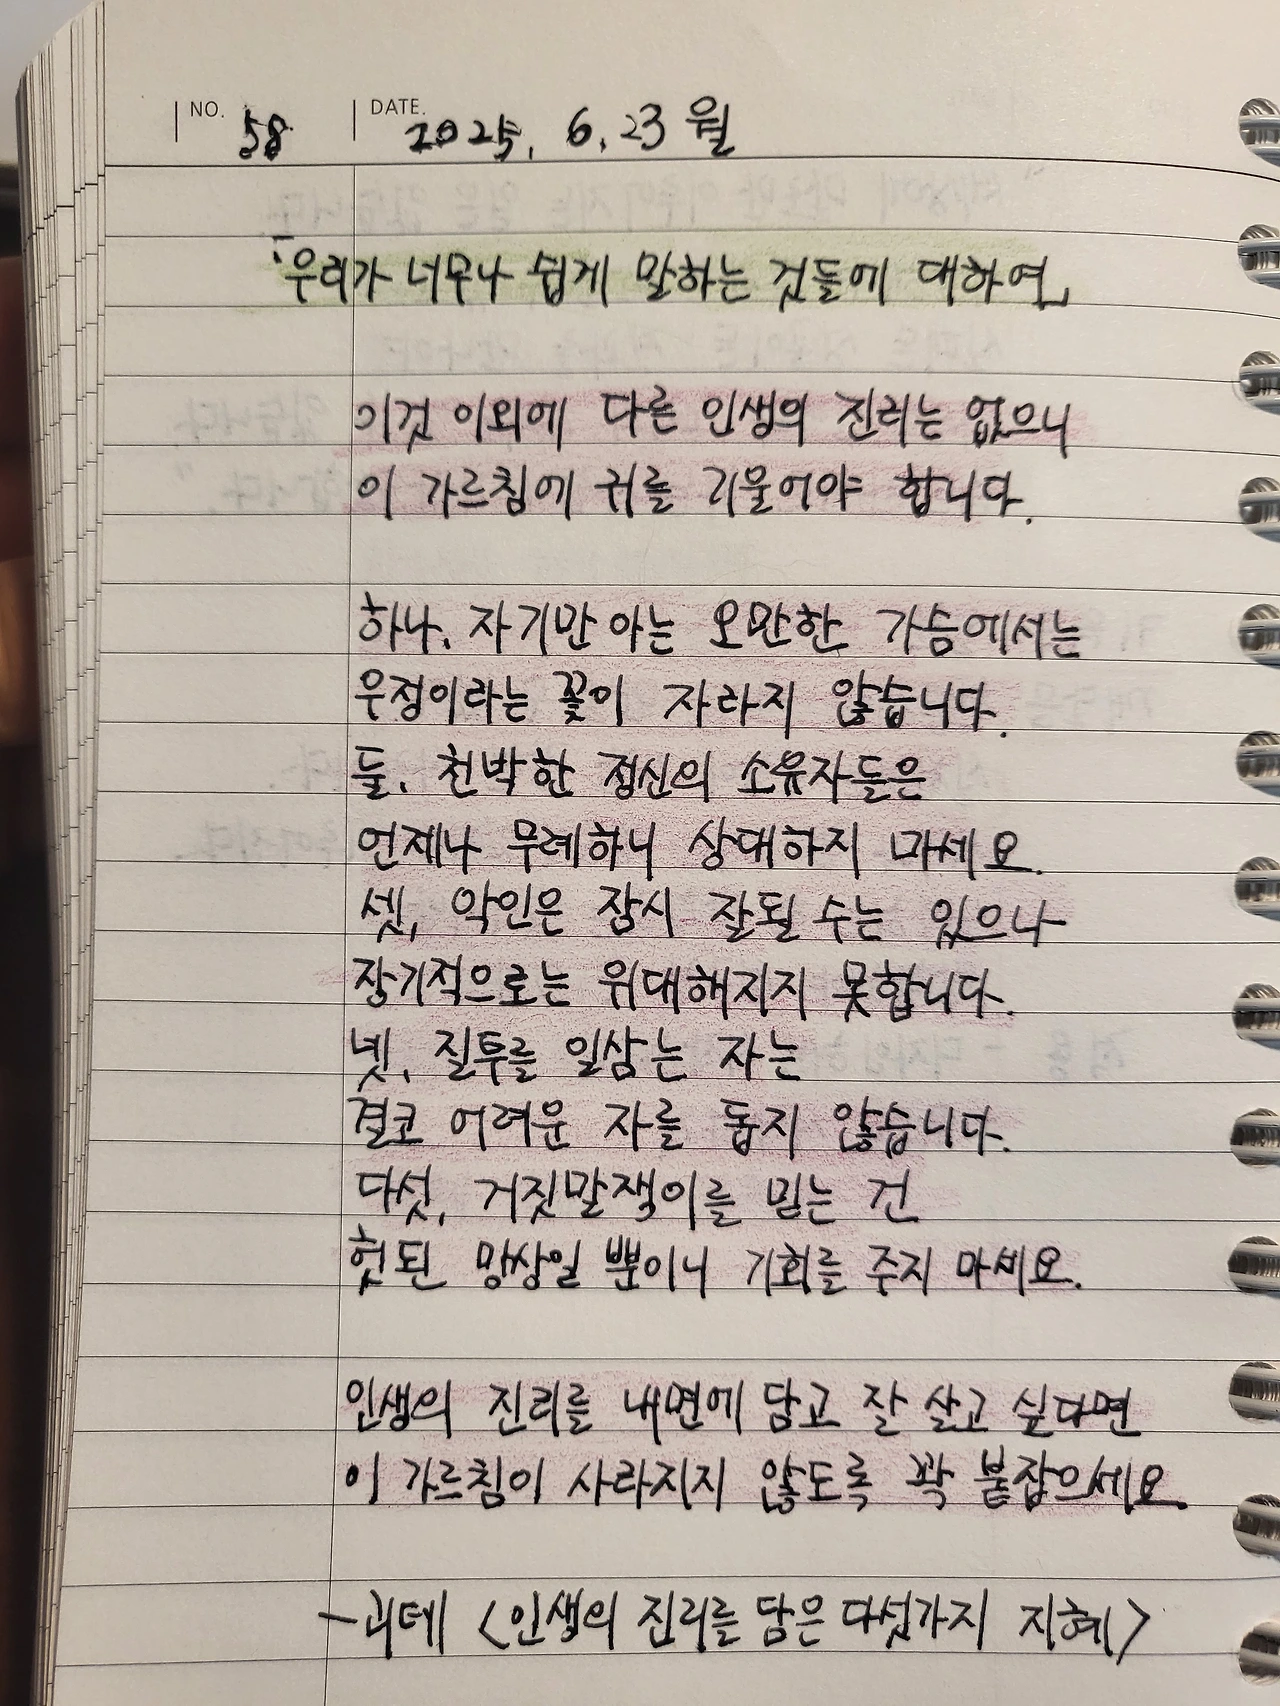 NO. 58 DATE. 2025. 6. 23 월
「우리가 너무나 쉽게 말하는 것들에 대하여」
이것 이외에 다른 인생의 진리는 없으니
이 가르침에 귀를 기울어야 합니다.
하나. 자기만 아는 오만한 가슴에서는
우정이라는 꽃이 자라지 않습니다.
둘. 천박한 정신의 소유자들은
언제나 무례하니 상대하지 마세요.
셋, 악인은 잠시 잘될 수는 있으나
장기적으로는 위대해지지 못합니다.
넷, 질투를 일삼는 자는
결코 어려운 자를 돕지 않습니다.
다섯, 거짓말쟁이를 믿는 건
헛된 망상일 뿐이니 기회를 주지 마세요.
인생의 진리를 내면에 담고 잘 살고 싶다면
이 가르침이 사라지지 않도록 꽉 붙잡으세요.
- 괴테 <인생의 진리를 담은 다섯가지 지혜>